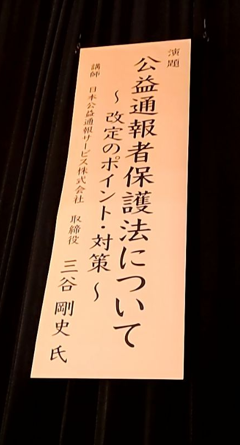 演題
公益通報者保護法について
～改定のポイント・対策～
講師 日本公益通報サービス株式会社 取締役 三谷剛史氏